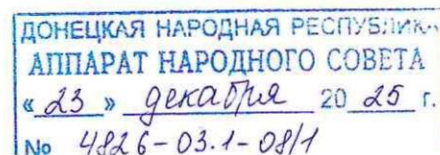 ДОНЕЦКАЯ НАРОДНАЯ РЕСПУБЛИКА
АППАРАТ НАРОДНОГО СОВЕТА
«23» декабря 2025 г.
№ 4826-03.1-08/1